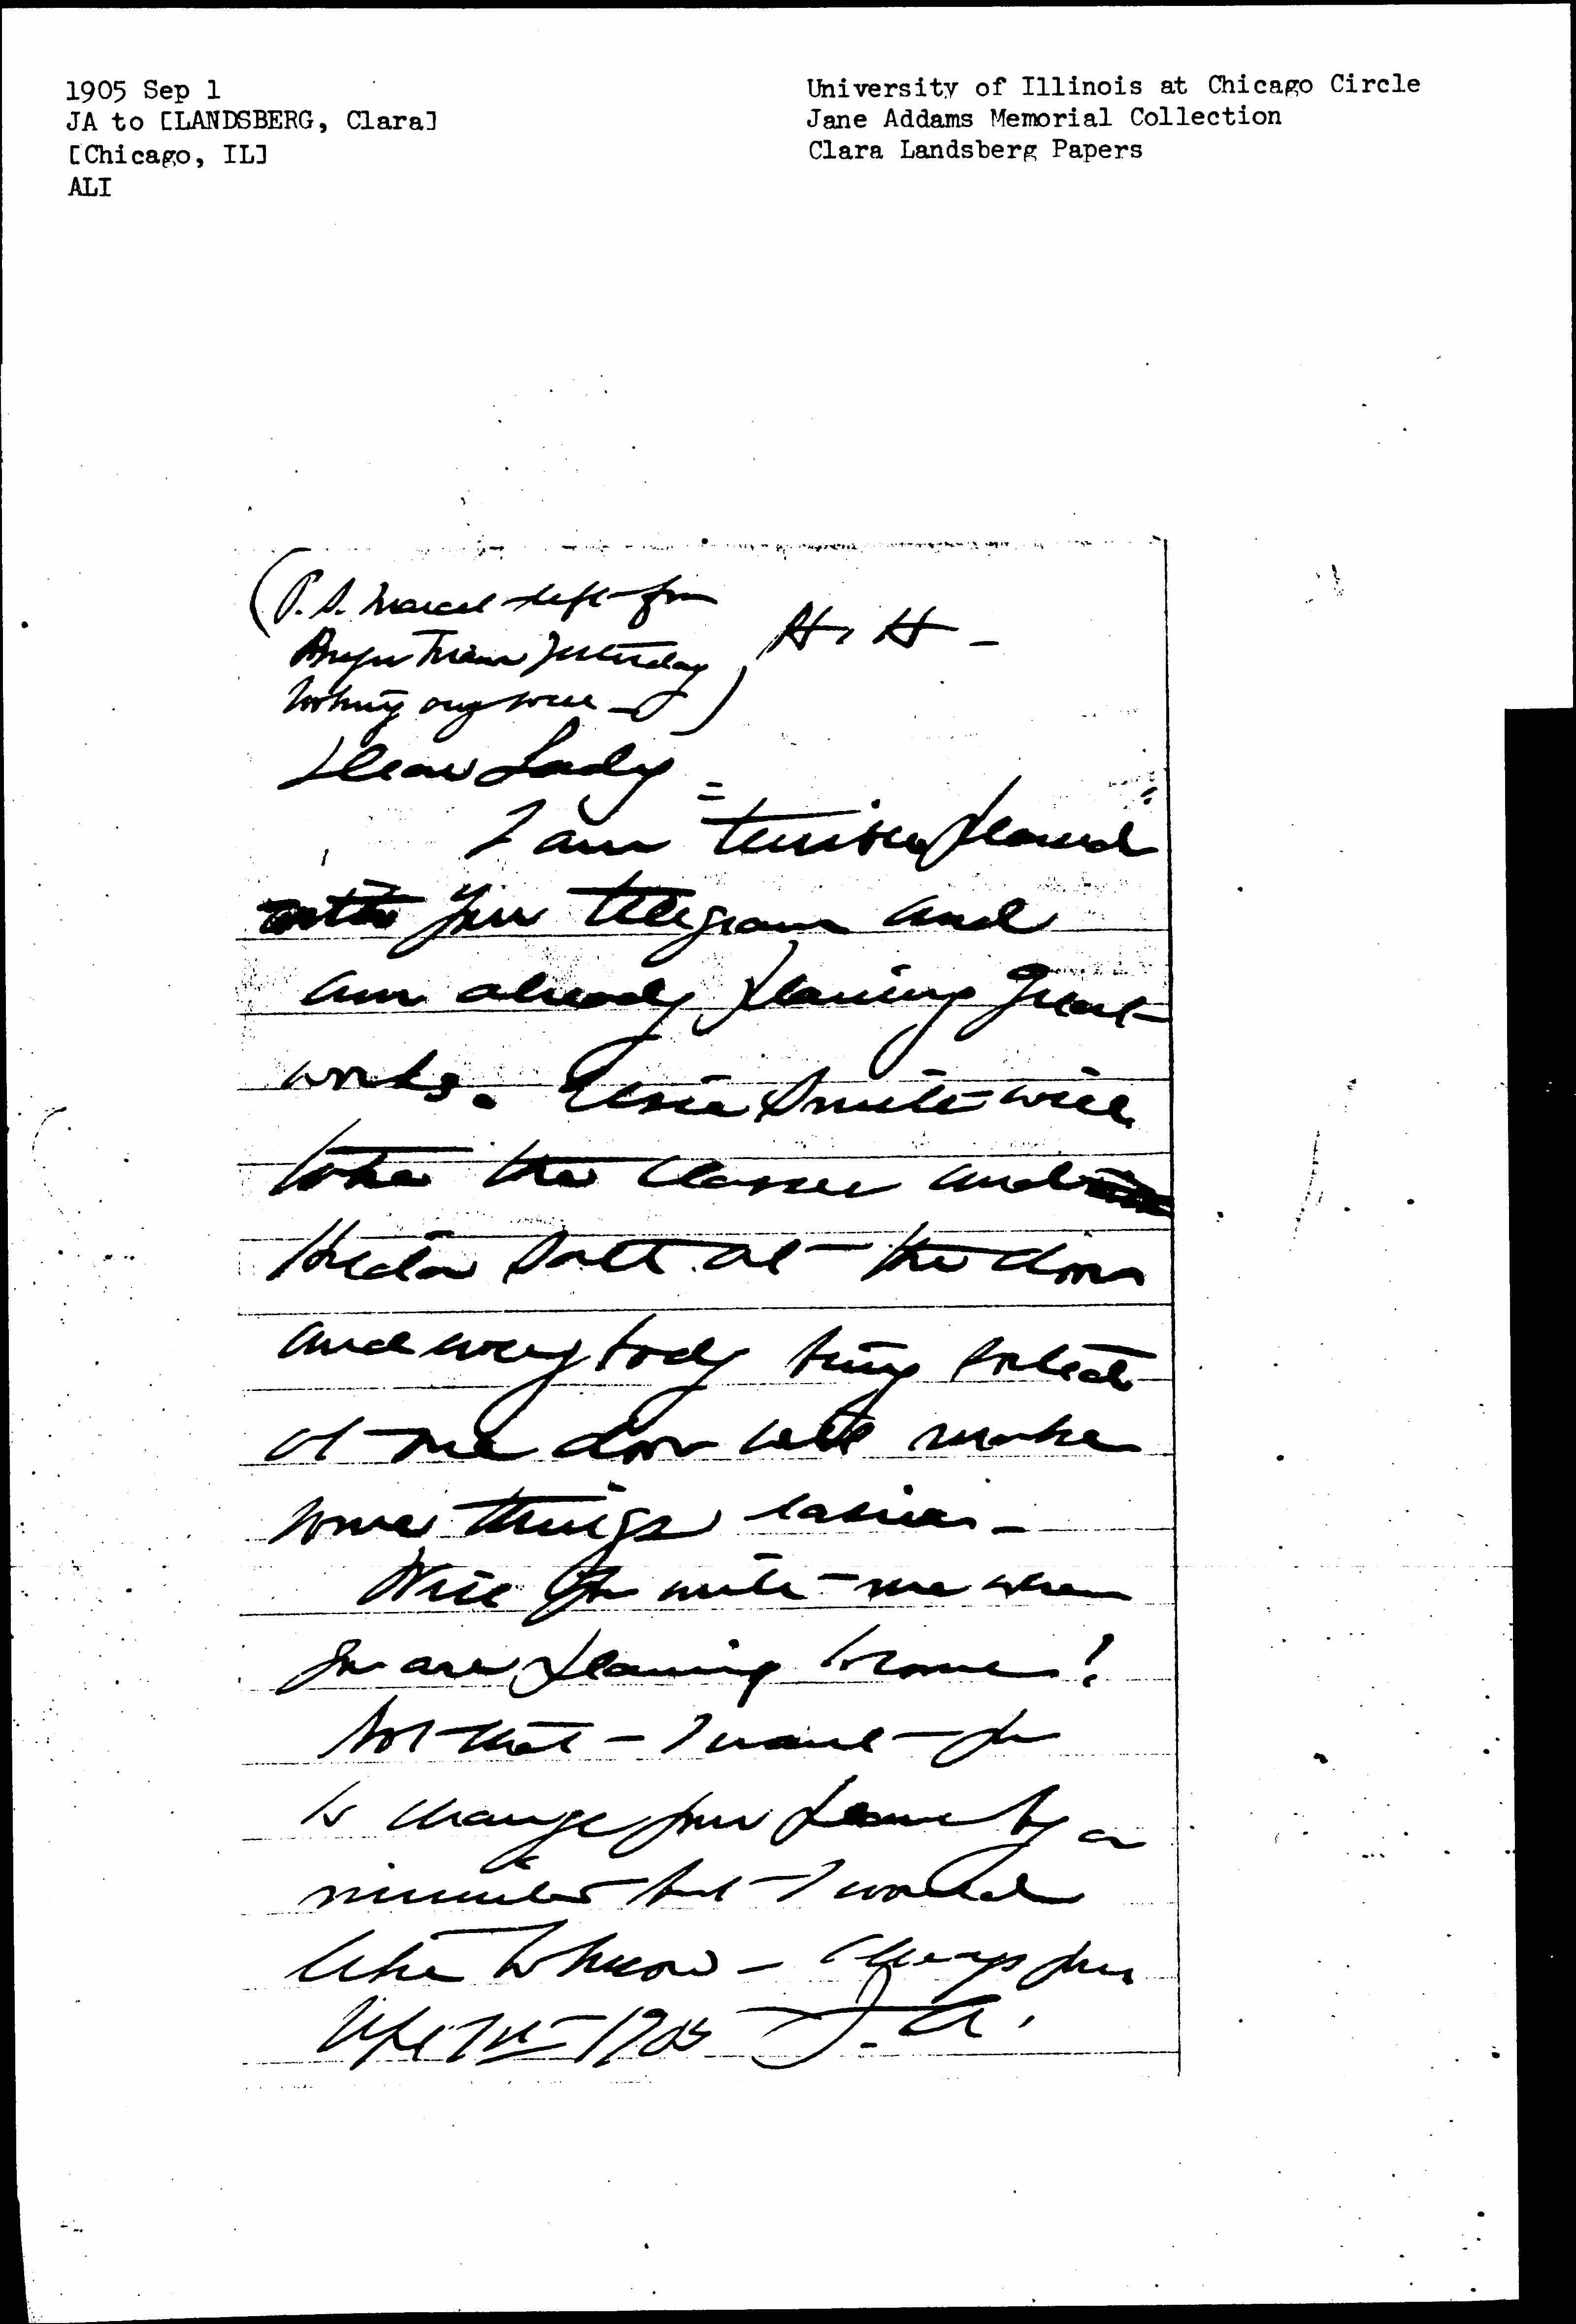 1905 Sep 1
JA to [LANDSBERG, Clara]
[Chicago, IL]
ALI
University of Illinois at Chicago Circle
Jane Addams Memorial Collection
Clara Landsberg Papers
(P.S. left for
yesterday
looking very well —)
H. H —
Dear Lady —
I am terribly pleased
your telegram and
am already planing great
works. Smith will
take the classes and
Hilda Satt at the door
and everybody being
at one door will make
some things easier —
Will you write me when
you are planing to come!
Not that I want you
to change your plans by a
minute but I would
like to know — Always yrs
Sept 1st 1905 J. A.